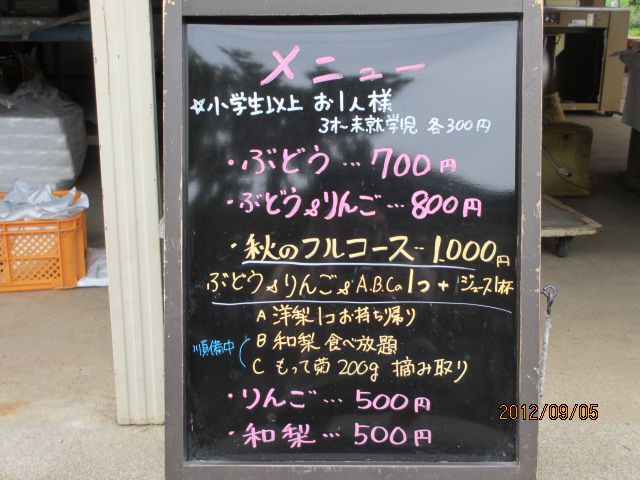 メニュー
☆小学生以上 お1人様
3才〜未就学児 各300円
・ぶどう…700円
・ぶどう&りんご…800円
・秋のフルコース…1.000円
ぶどう&りんご&A.B.Cの1つ+ジュース1杯
A 洋梨1コお持ち帰り
順備中
B 和梨 食べ放題
C もって菊 200g 摘み取り
・りんご…500円
・和梨…500円
2012/09/05